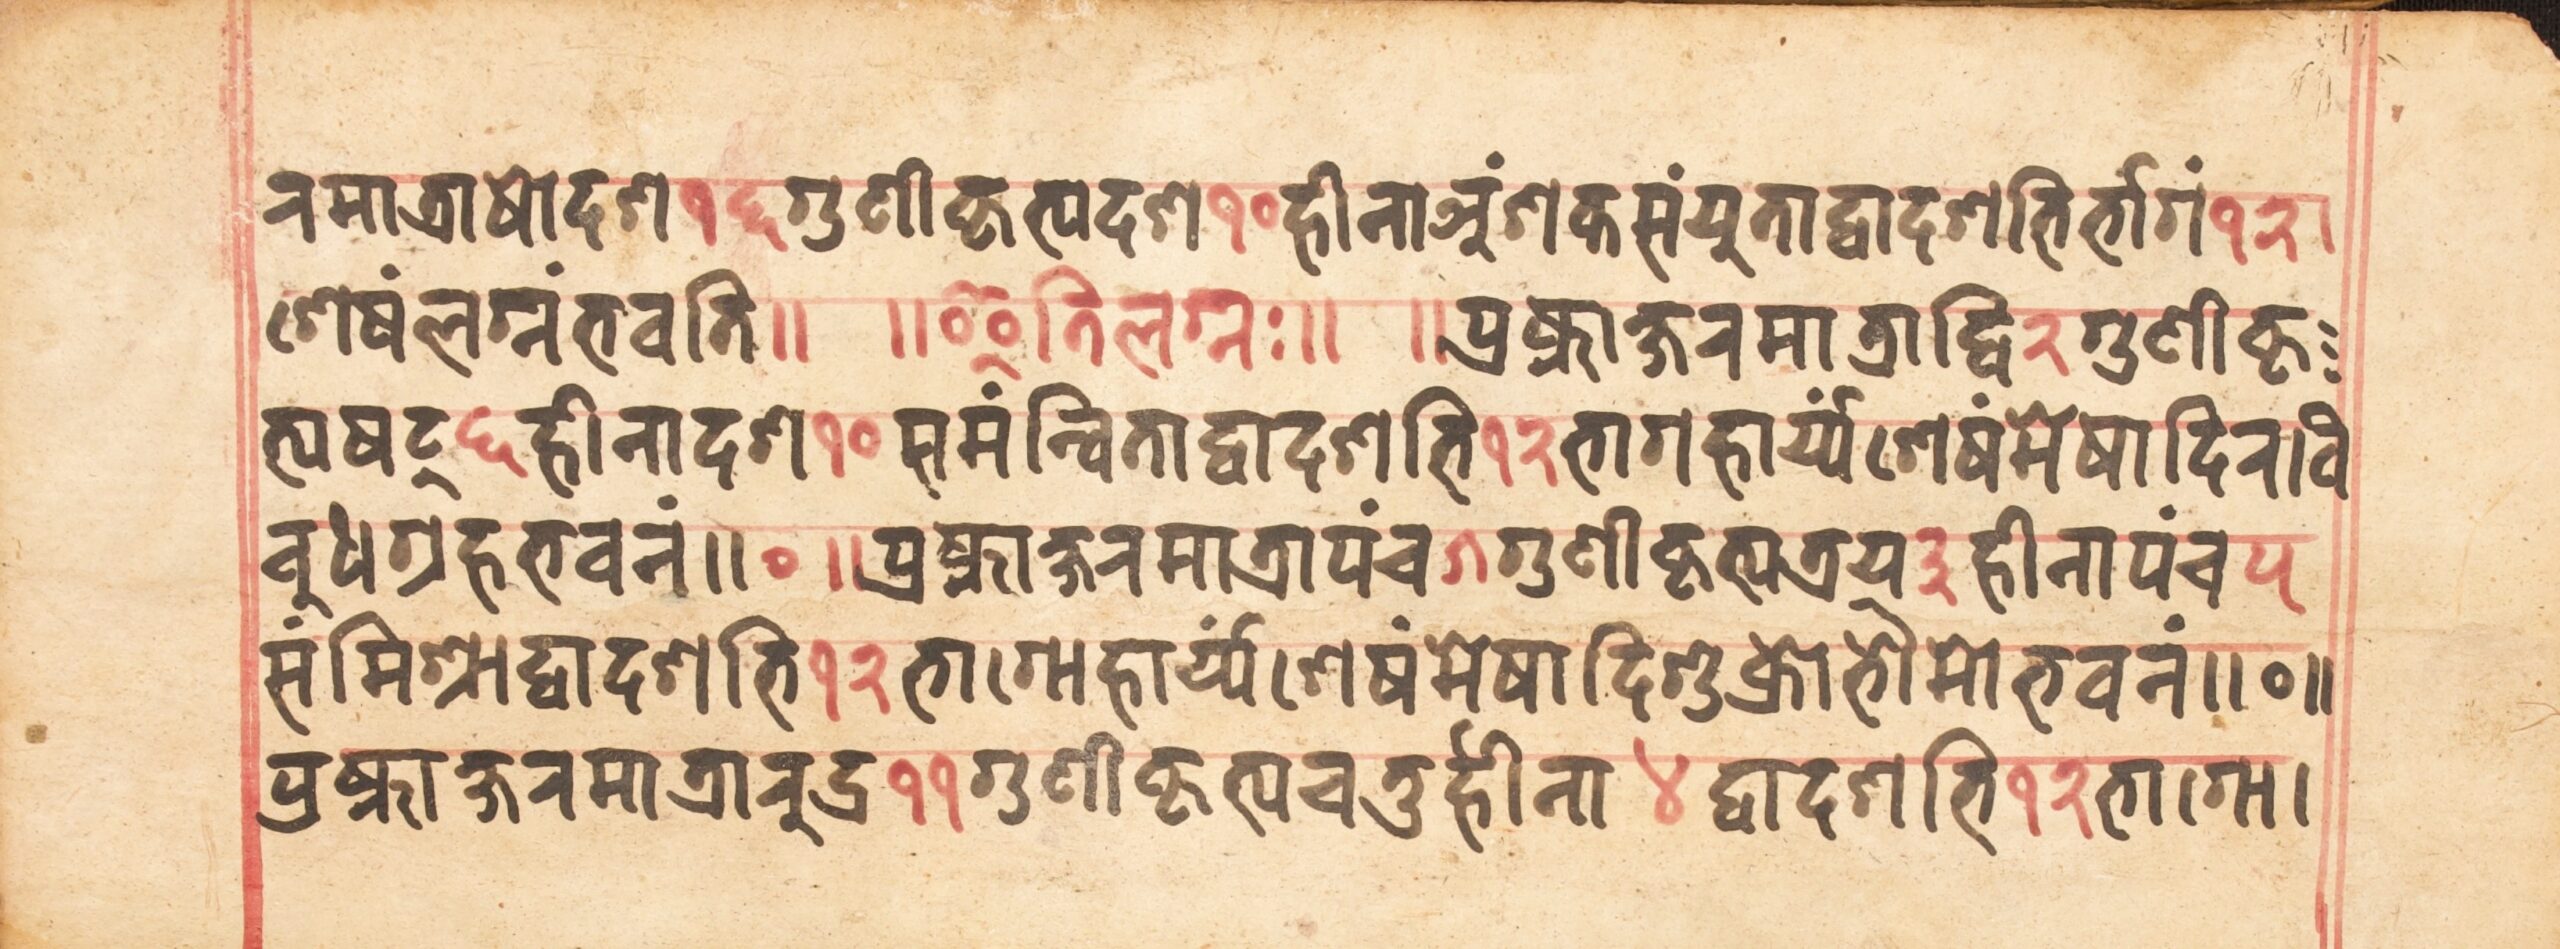 रमात्राषोदश१६गुणीकृत्यदश१०हीनाअंशकसंयुताद्वादशभिर्भागं१२।
शेषंलग्नंभवति॥ ॥इतिलग्नः॥ ॥प्रष्णाक्षरमात्राद्वि२गुणीकृ
त्यषट्६हीनादश१०समंन्विताद्वादशभि१२भागहार्य्यंशेषंमेषादिरवि
बुधग्रहभवनं॥०॥प्रष्णाक्षरमात्रापंच५गुणीकृत्यत्रय३हीनापंच५
संमिश्राद्वादशभि१२भागोहार्य्यंशेषंमेषादिशुक्रोभौमोभवनं॥०॥
प्रष्णाक्षरमात्रारुद्र११गुणीकृत्यचतुर्हीना४द्वादशभि१२भागो।